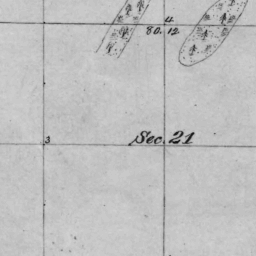 4
80.12
3
Sec. 21